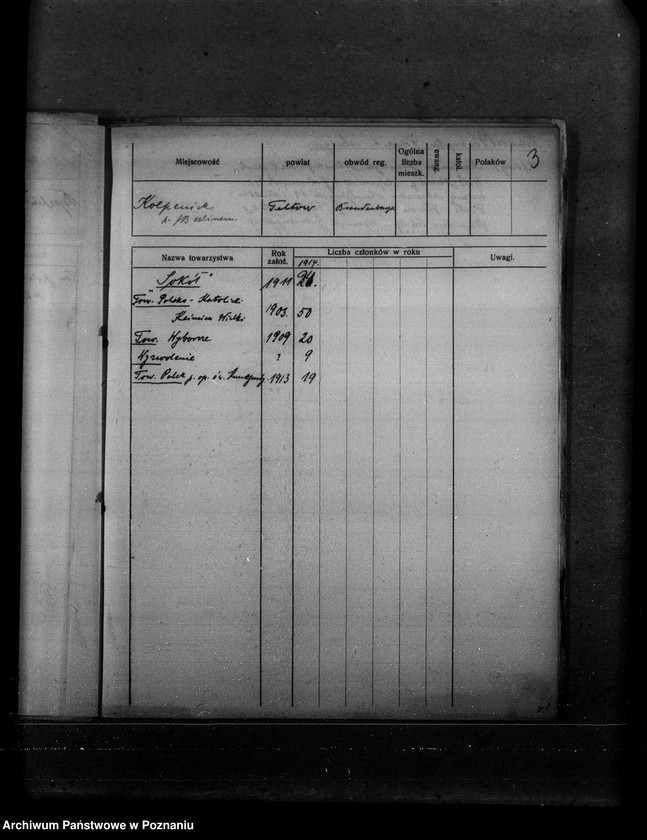 Miejscowość powiat obwód reg. Ogólna liczba mieszk. ewang. katol. Polaków 3
Teltow Brandenburg
Nazwa towarzystwa Rok założ. Liczba członków w roku Uwagi.
1914.
"Sokół" 1911
Tow. Polsko-Katolic.
1903. 50
Tow. Wyborcze 1909 20
Wyzwolenie ? 9
Tow. Polek p. op. św. 1913 19
Archiwum Państwowe w Poznaniu